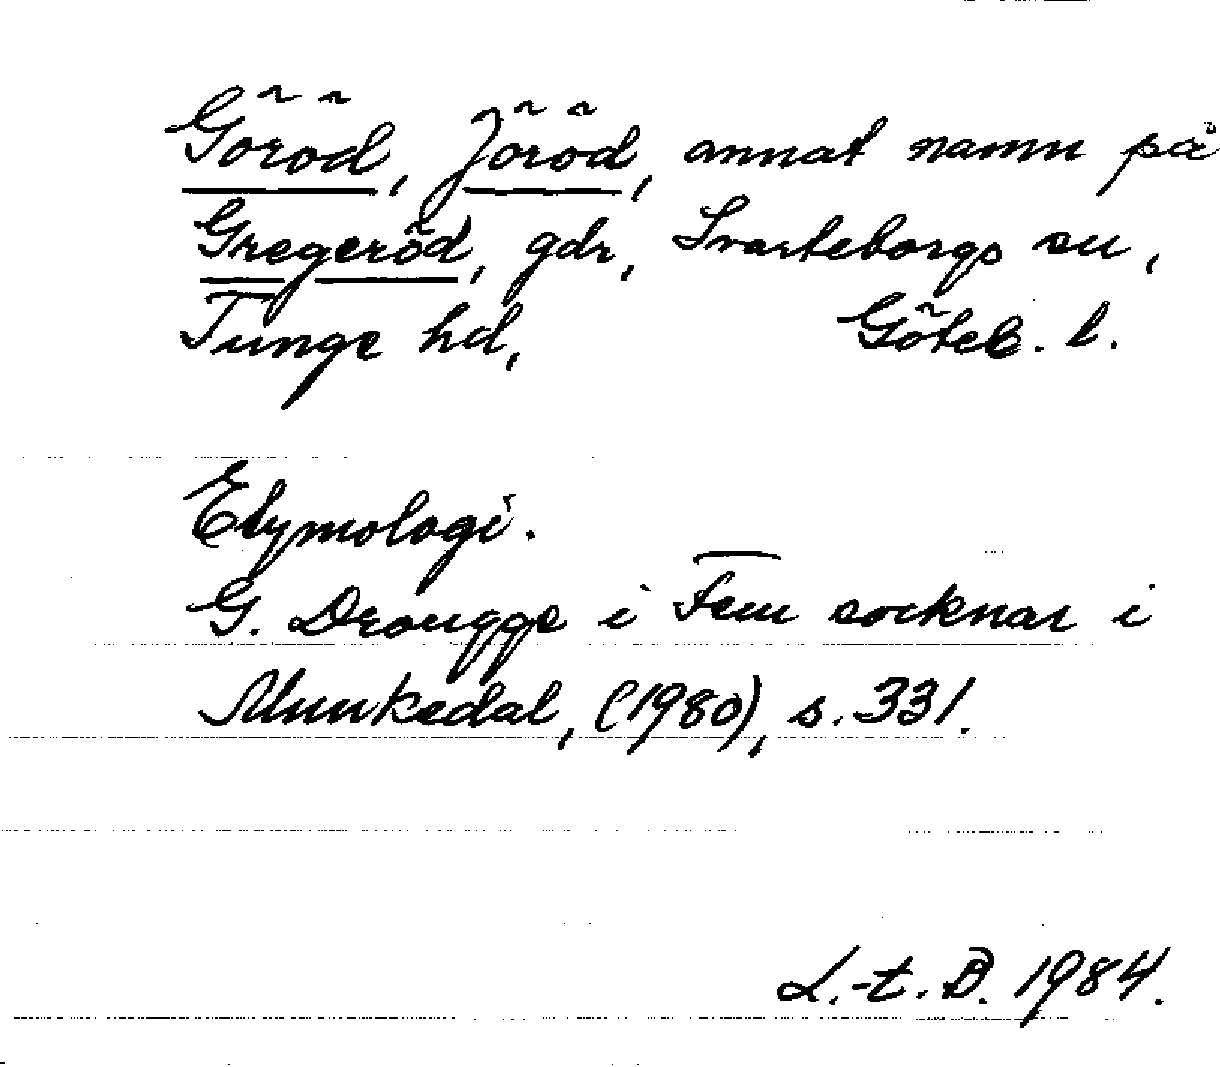 Göröd, Jöröd, annat namn på
Gregeröd, gdr, Svarteborgs sn,
Tunge hd, Göteb. l.
Etymologi.
G. Drougge i Fem socknar i
Munkedal, (1980), s. 331.
L.-t. B. 1984.